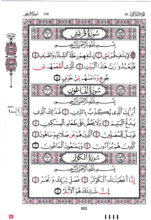 سُورَةُ قُرَيْشٍ
بِسْمِ اللَّهِ الرَّحْمَٰنِ الرَّحِيمِ
لِإِيلَٰفِ قُرَيْشٍ إِۦلَٰفِهِمْ رِحْلَةَ الشِّتَاءِ وَالصَّيْفِ
فَلْيَعْبُدُوا رَبَّ هَٰذَا الْبَيْتِ الَّذِي أَطْعَمَهُم مِّن
جُوعٍ وَءَامَنَهُم مِّنْ خَوْفٍ
سُورَةُ الْمَاعُونِ
بِسْمِ اللَّهِ الرَّحْمَٰنِ الرَّحِيمِ
أَرَءَيْتَ الَّذِي يُكَذِّبُ بِالدِّينِ فَذَٰلِكَ الَّذِي
يَدُعُّ الْيَتِيمَ وَلَا يَحُضُّ عَلَىٰ طَعَامِ الْمِسْكِينِ
فَوَيْلٌ لِّلْمُصَلِّينَ الَّذِينَ هُمْ عَن صَلَاتِهِمْ سَاهُونَ
الَّذِينَ هُمْ يُرَاءُونَ وَيَمْنَعُونَ الْمَاعُونَ
سُورَةُ الْكَوْثَرِ
بِسْمِ اللَّهِ الرَّحْمَٰنِ الرَّحِيمِ
إِنَّا أَعْطَيْنَٰكَ الْكَوْثَرَ فَصَلِّ لِرَبِّكَ وَانْحَرْ
إِنَّ شَانِئَكَ هُوَ الْأَبْتَرُ